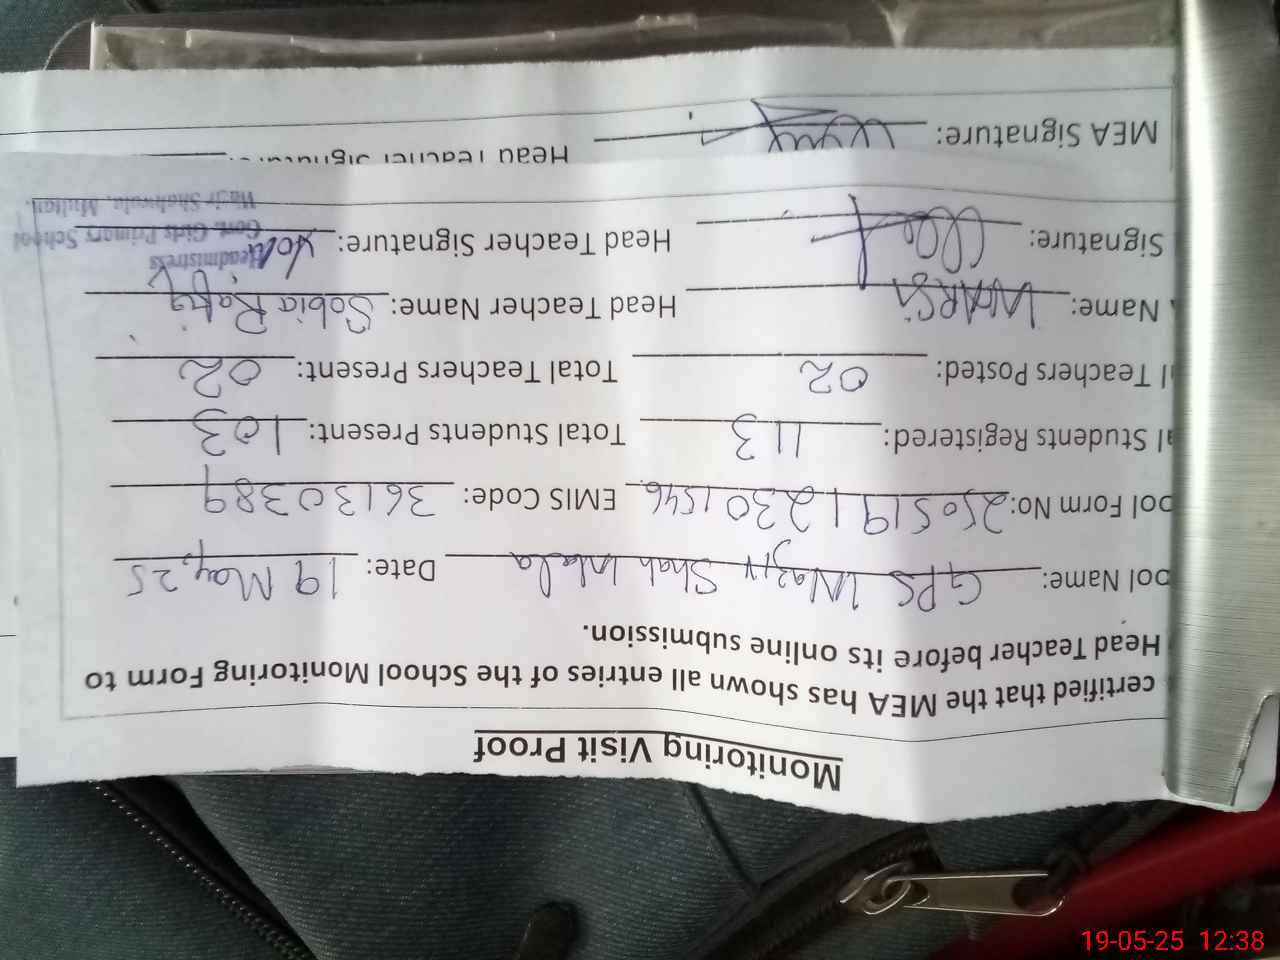 Monitoring Visit Proof
certified that the MEA has shown all entries of the School Monitoring Form to
Head Teacher before its online submission.
ool Name: GPS Wazir Shah Wala Date: 19 May, 25
ool Form No: 2505191230 1546 EMIS Code: 36130389
al Students Registered: 113 Total Students Present: 103
l Teachers Posted: 02 Total Teachers Present: 02
Name: WARSI Head Teacher Name: Sobia Rafiq
Signature: Head Teacher Signature:
Headmistress
Govt. Girls Primary School
Wazir Shahwala, Multan.
MEA Signature: Head Teacher Signature:
19-05-25 12:38